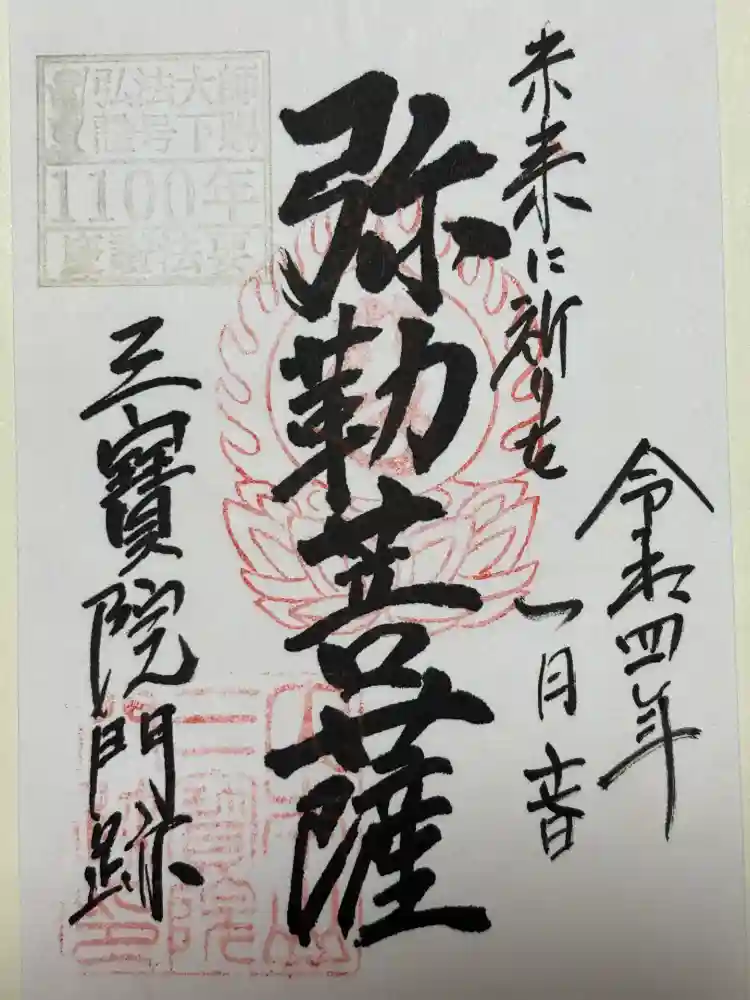 令和四年
一月
未来に祈りを
弥勒菩薩
三寶院門跡
弘法大師
諡号下賜
1100年
慶讃法要
三寶院